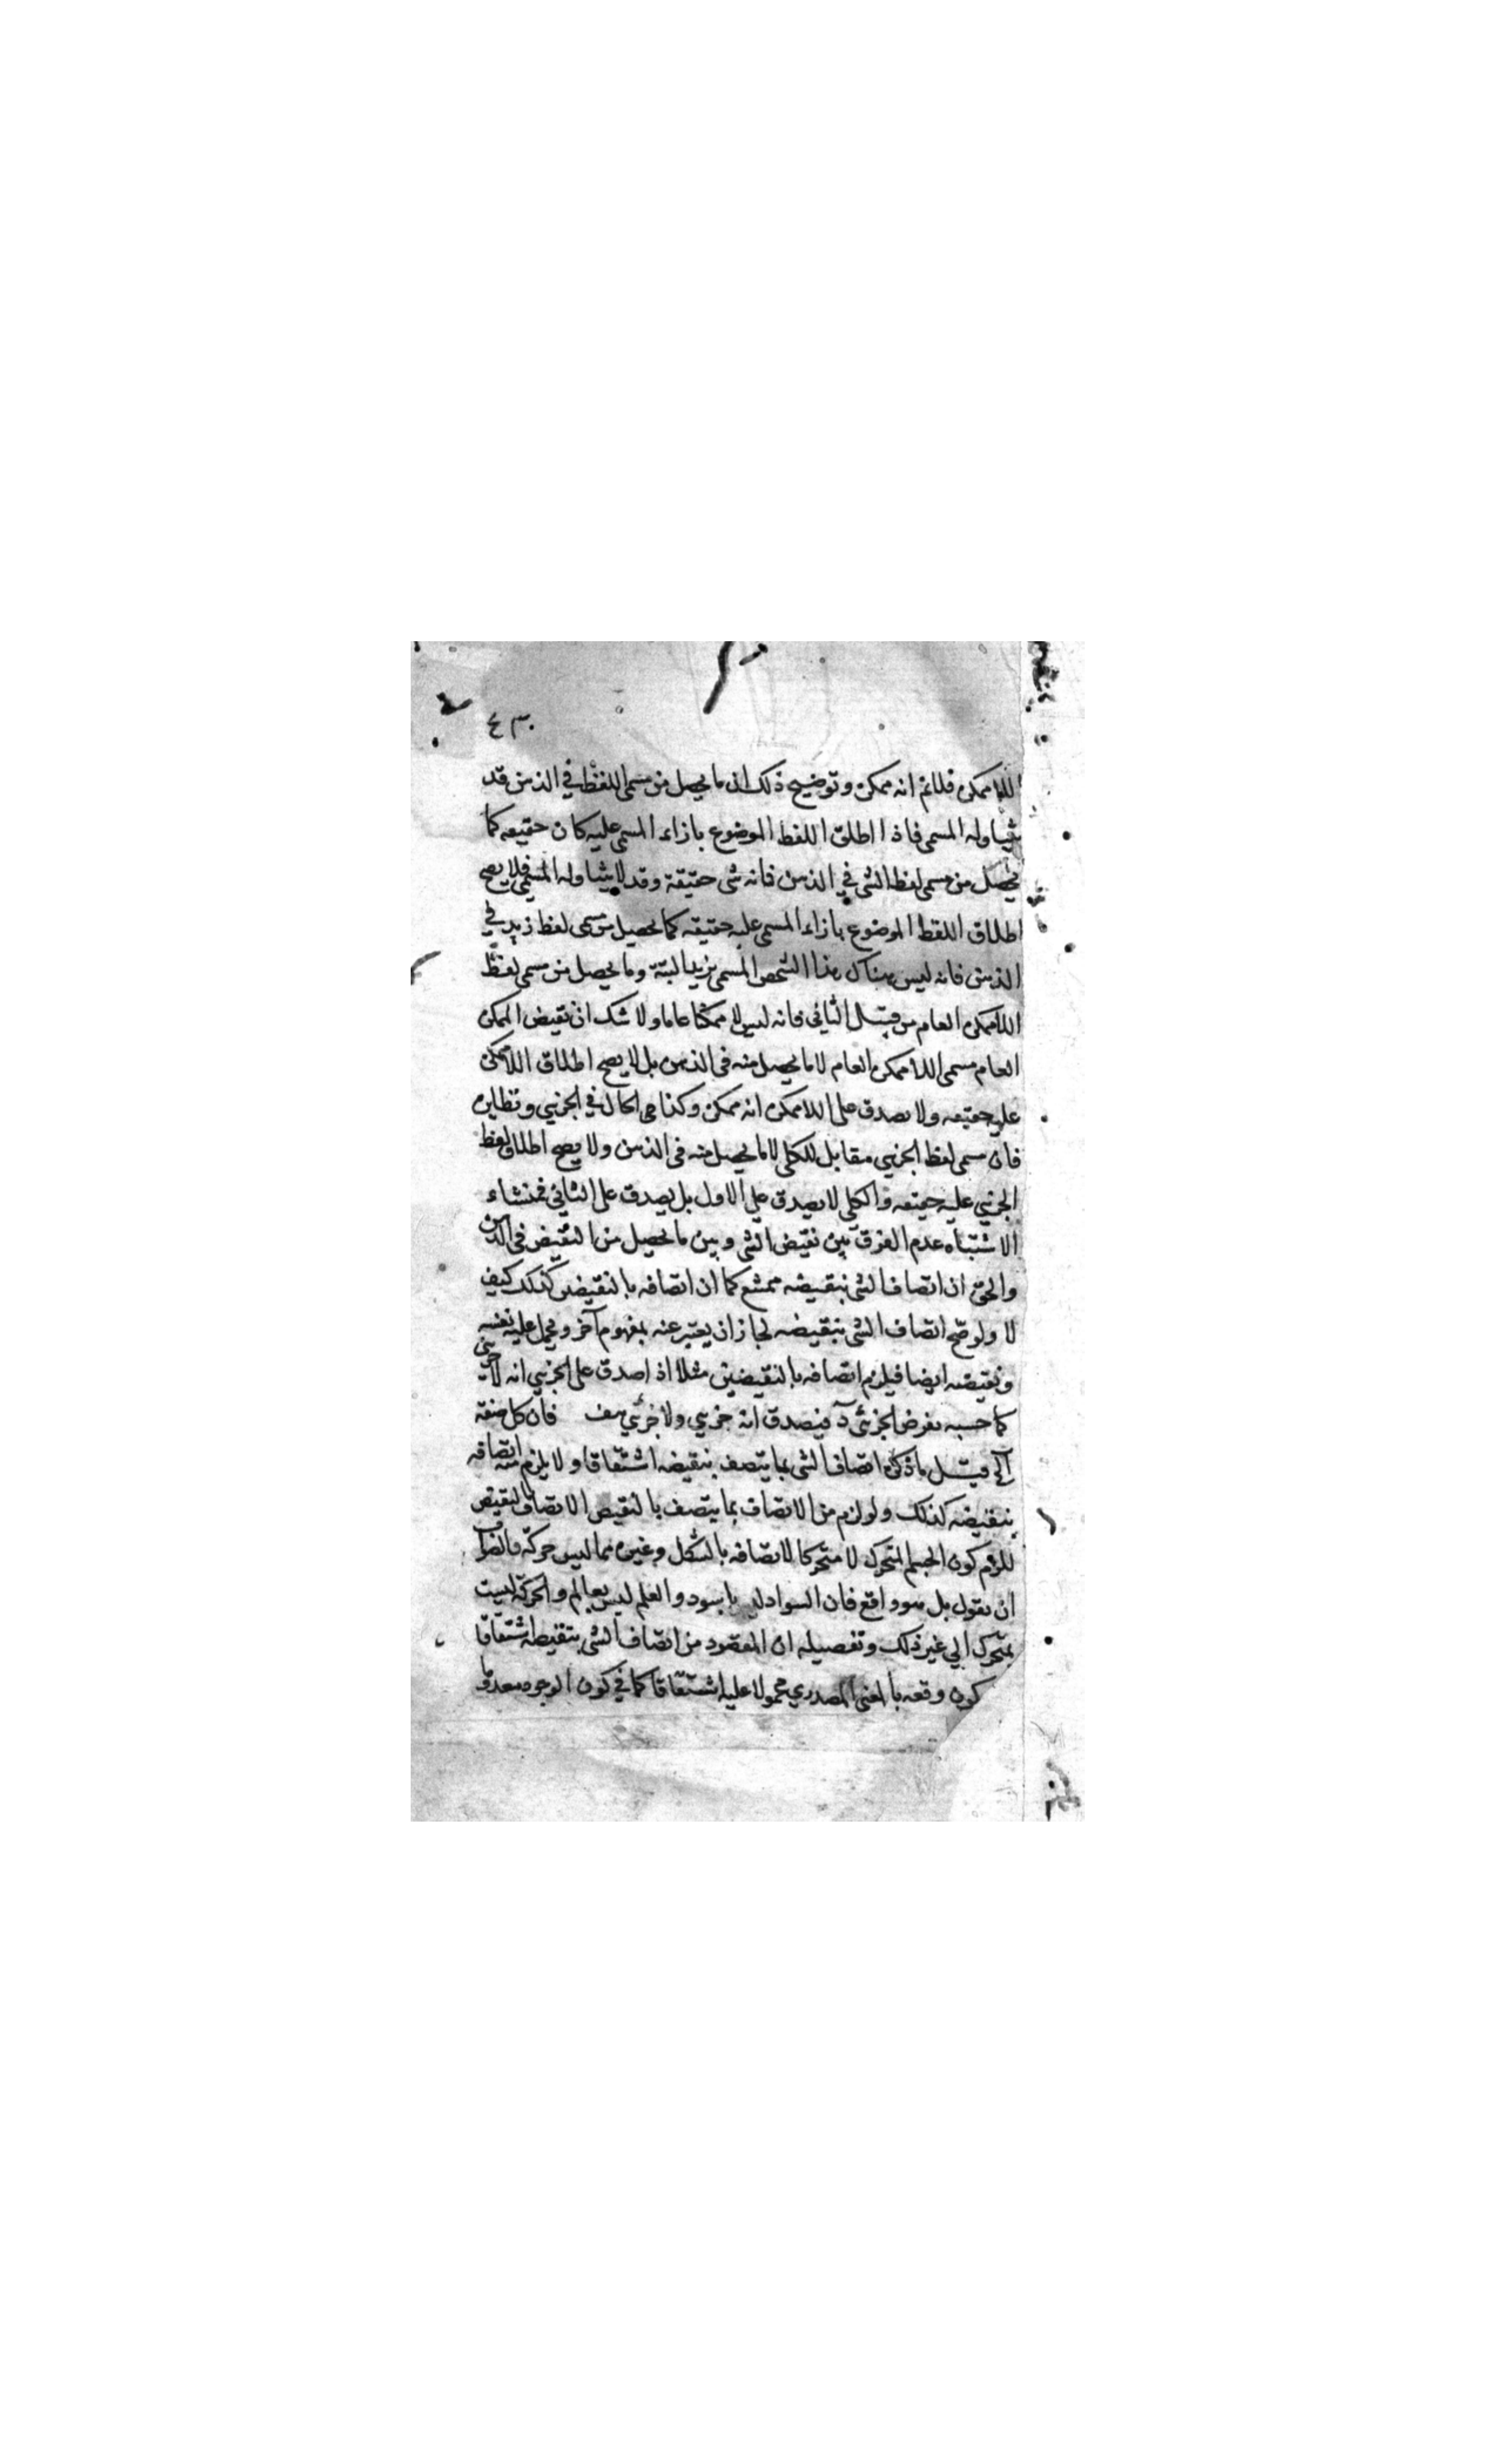 ٤٣٠
اللاممكن فلانم انه ممكن وتوضيح ذلك ان ما يحصل من مسمى اللفظ في الذهن قد
يتناوله المسمى فاذا اطلق اللفظ الموضوع بازاء المسمى عليه كان حقيقه كما
يحصل من مسمى لفظ الشى في الذهن فانه شى حقيقة وقد لا يتناوله المسمى فلا يصح
اطلاق اللفظ الموضوع بازاء المسمى عليه حقيقه كما يحصل من مسمى لفظ زيد في
الذهن فانه ليس هناك هذا الشخص المسمى بزيد البتة وما يحصل من مسمى لفظ
اللاممكن العام من قبيل الثاني فانه ليس لا ممكنا عاما ولا شك ان نقيض الممكن
العام مسمى اللاممكن العام لا ما يحصل منه في الذهن بل لا يصح اطلاق اللاممكن
عليه حقيقه ولا يصدق على اللاممكن انه ممكن وكذا هى الحال في الجزيي ونظايره
فان مسمى لفظ الجزيي مقابل للكلي لا ما يحصل منه في الذهن ولا يصح اطلاق لفظ
الجزيي عليه حقيقه والكلي لا يصدق علي الاول بل يصدق على الثاني فمنشاء
الاشتباه عدم الفرق بين نقيض الشى وبين ما يحصل من النقيض في الذهن
والحق ان اتصاف الشى بنقيضه ممتنع كما ان اتصافه بالنقيضين كذلك كيف
لا ولو صح اتصاف الشى بنقيضه لجاز ان يعتبر عنه بمفهوم آخر ويحمل عليه نفسه
ونقيضه ايضا فيلزم اتصافه بالنقيضين مثلا اذا صدق على الجزيي انه لا جزيى
كما حسبه نفرض الجزئى د فيصدق انه جزيي ولا جزئي هف فان كل صفة
آلخ قيل ما ذكره اتصاف الشى بما يتصف بنقيضه اشتقاقا ولا يلزم منه اتصافه
بنقيضه كذلك ولو لزم من الاتصاف بما يتصف بالنقيض الاتصاف بالنقيض
للزم كون الجسم المتحرك لا متحركا لاتصافه بالشكل وغيره مما ليس حركة والصواب
ان يقول بل هو واقع فان السواد ليس باسود والعلم ليس بعالم والحركة ليست
بمتحرك الي غير ذلك وتفصيله ان المقصود من اتصاف الشى بنقيضه اشتقاقا
كون وقعه بالمعنى المصدري محمولا عليه اشتقاقا كما في كون الوجود معدوما